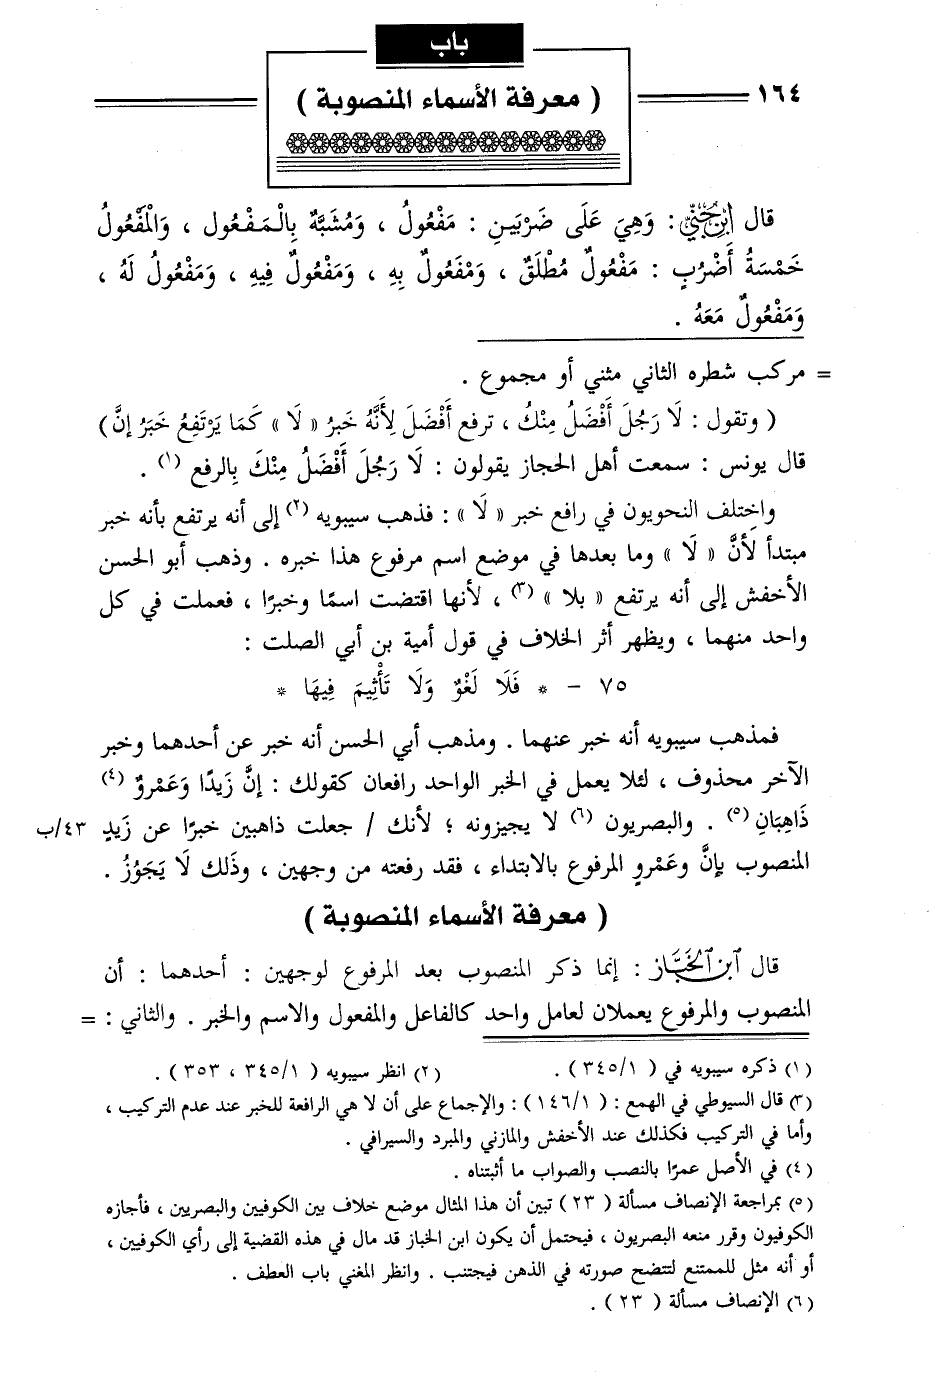 باب
١٦٤
( معرفة الأسماء المنصوبة )
قال ابن جني : وَهِيَ عَلَى ضَرْبَينِ : مَفْعُولُ ، وَمُشَبَّهٌ بِالْمَفْعُول ، وَالْمَفْعُولُ
خَمْسَةُ أَضْرُبٍ : مَفْعُولٌ مُطْلَقٌ ، وَمَفْعُولٌ بِهِ ، وَمَفْعُولٌ فِيهِ ، وَمَفْعُولٌ لَهُ ،
وَمَفْعُولٌ مَعَهُ .
= مركب شطره الثاني مثني أو مجموع .
( وتقول : لَا رَجُلَ أَفْضَلُ مِنْكُ ، ترفع أَفْضَلَ لِأَنَّهُ خَبَرُ « لَا » كَمَا يَرْتَفِعُ خَبَرُ إنَّ )
قال يونس : سمعت أهل الحجاز يقولون : لَا رَجُلَ أَفْضَلُ مِنْكَ بِالرفع (١) .
واختلف النحويون في رافع خبر « لَا » : فذهب سيبويه (٢) إلى أنه يرتفع بأنه خبر
مبتدأ لأَنَّ « لَا » وما بعدها في موضع اسم مرفوع هذا خبره . وذهب أبو الحسن
الأخفش إلى أنه يرتفع « بلا » (٣) ، لأنها اقتضت اسمًا وخبرًا ، فعملت في كل
واحد منهما ، ويظهر أثر الخلاف في قول أمية بن أبي الصلت :
٧٥ – * فَلَا لَغْوٌ وَلَا تَأْثِيمَ فِيهَا *
فمذهب سيبويه أنه خبر عنهما . ومذهب أبي الحسن أنه خبر عن أحدهما وخبر
الآخر محذوف ، لئلا يعمل في الخبر الواحد رافعان كقولك : إنَّ زَيدًا وَعَمْروٌ (٤)
ذَاهِبَانِ (٥) . والبصريون (٦) لا يجيزونه ؛ لأنك / جعلت ذاهبين خبرًا عن زَيدٍ ٤٣/ب
المنصوب بإنَّ وعَمْروٍ المرفوع بالابتداء ، فقد رفعته من وجهين ، وذَلك لَا يَجَوُزُ .
( معرفة الأسماء المنصوبة )
قال ابن الخباز : إنما ذكر المنصوب بعد المرفوع لوجهين : أحدهما : أن
المنصوب والمرفوع يعملان لعامل واحد كالفاعل والمفعول والاسم والخبر . والثاني : =
(١) ذكره سيبويه في ( ٣٤٥/١ ) . (٢) انظر سيبويه ( ٣٤٥/١ ، ٣٥٣ ) .
(٣) قال السيوطي في الهمع : ( ١٤٦/١ ) : والإجماع على أن لا هي الرافعة للخبر عند عدم التركيب ،
وأما في التركيب فكذلك عند الأخفش والمازني والمبرد والسيرافي .
(٤) في الأصل عمرًا بالنصب والصواب ما أثبتناه .
(٥) بمراجعة الإنصاف مسألة ( ٢٣ ) تبين أن هذا المثال موضع خلاف بين الكوفيين والبصريين ، فأجازه
الكوفيون وقرر منعه البصريون ، فيحتمل أن يكون ابن الخباز قد مال في هذه القضية إلى رأي الكوفيين ،
أو أنه مثل للممتنع لتتضح صورته في الذهن فيجتنب . وانظر المغني باب العطف .
(٦) الإنصاف مسألة ( ٢٣ ) .